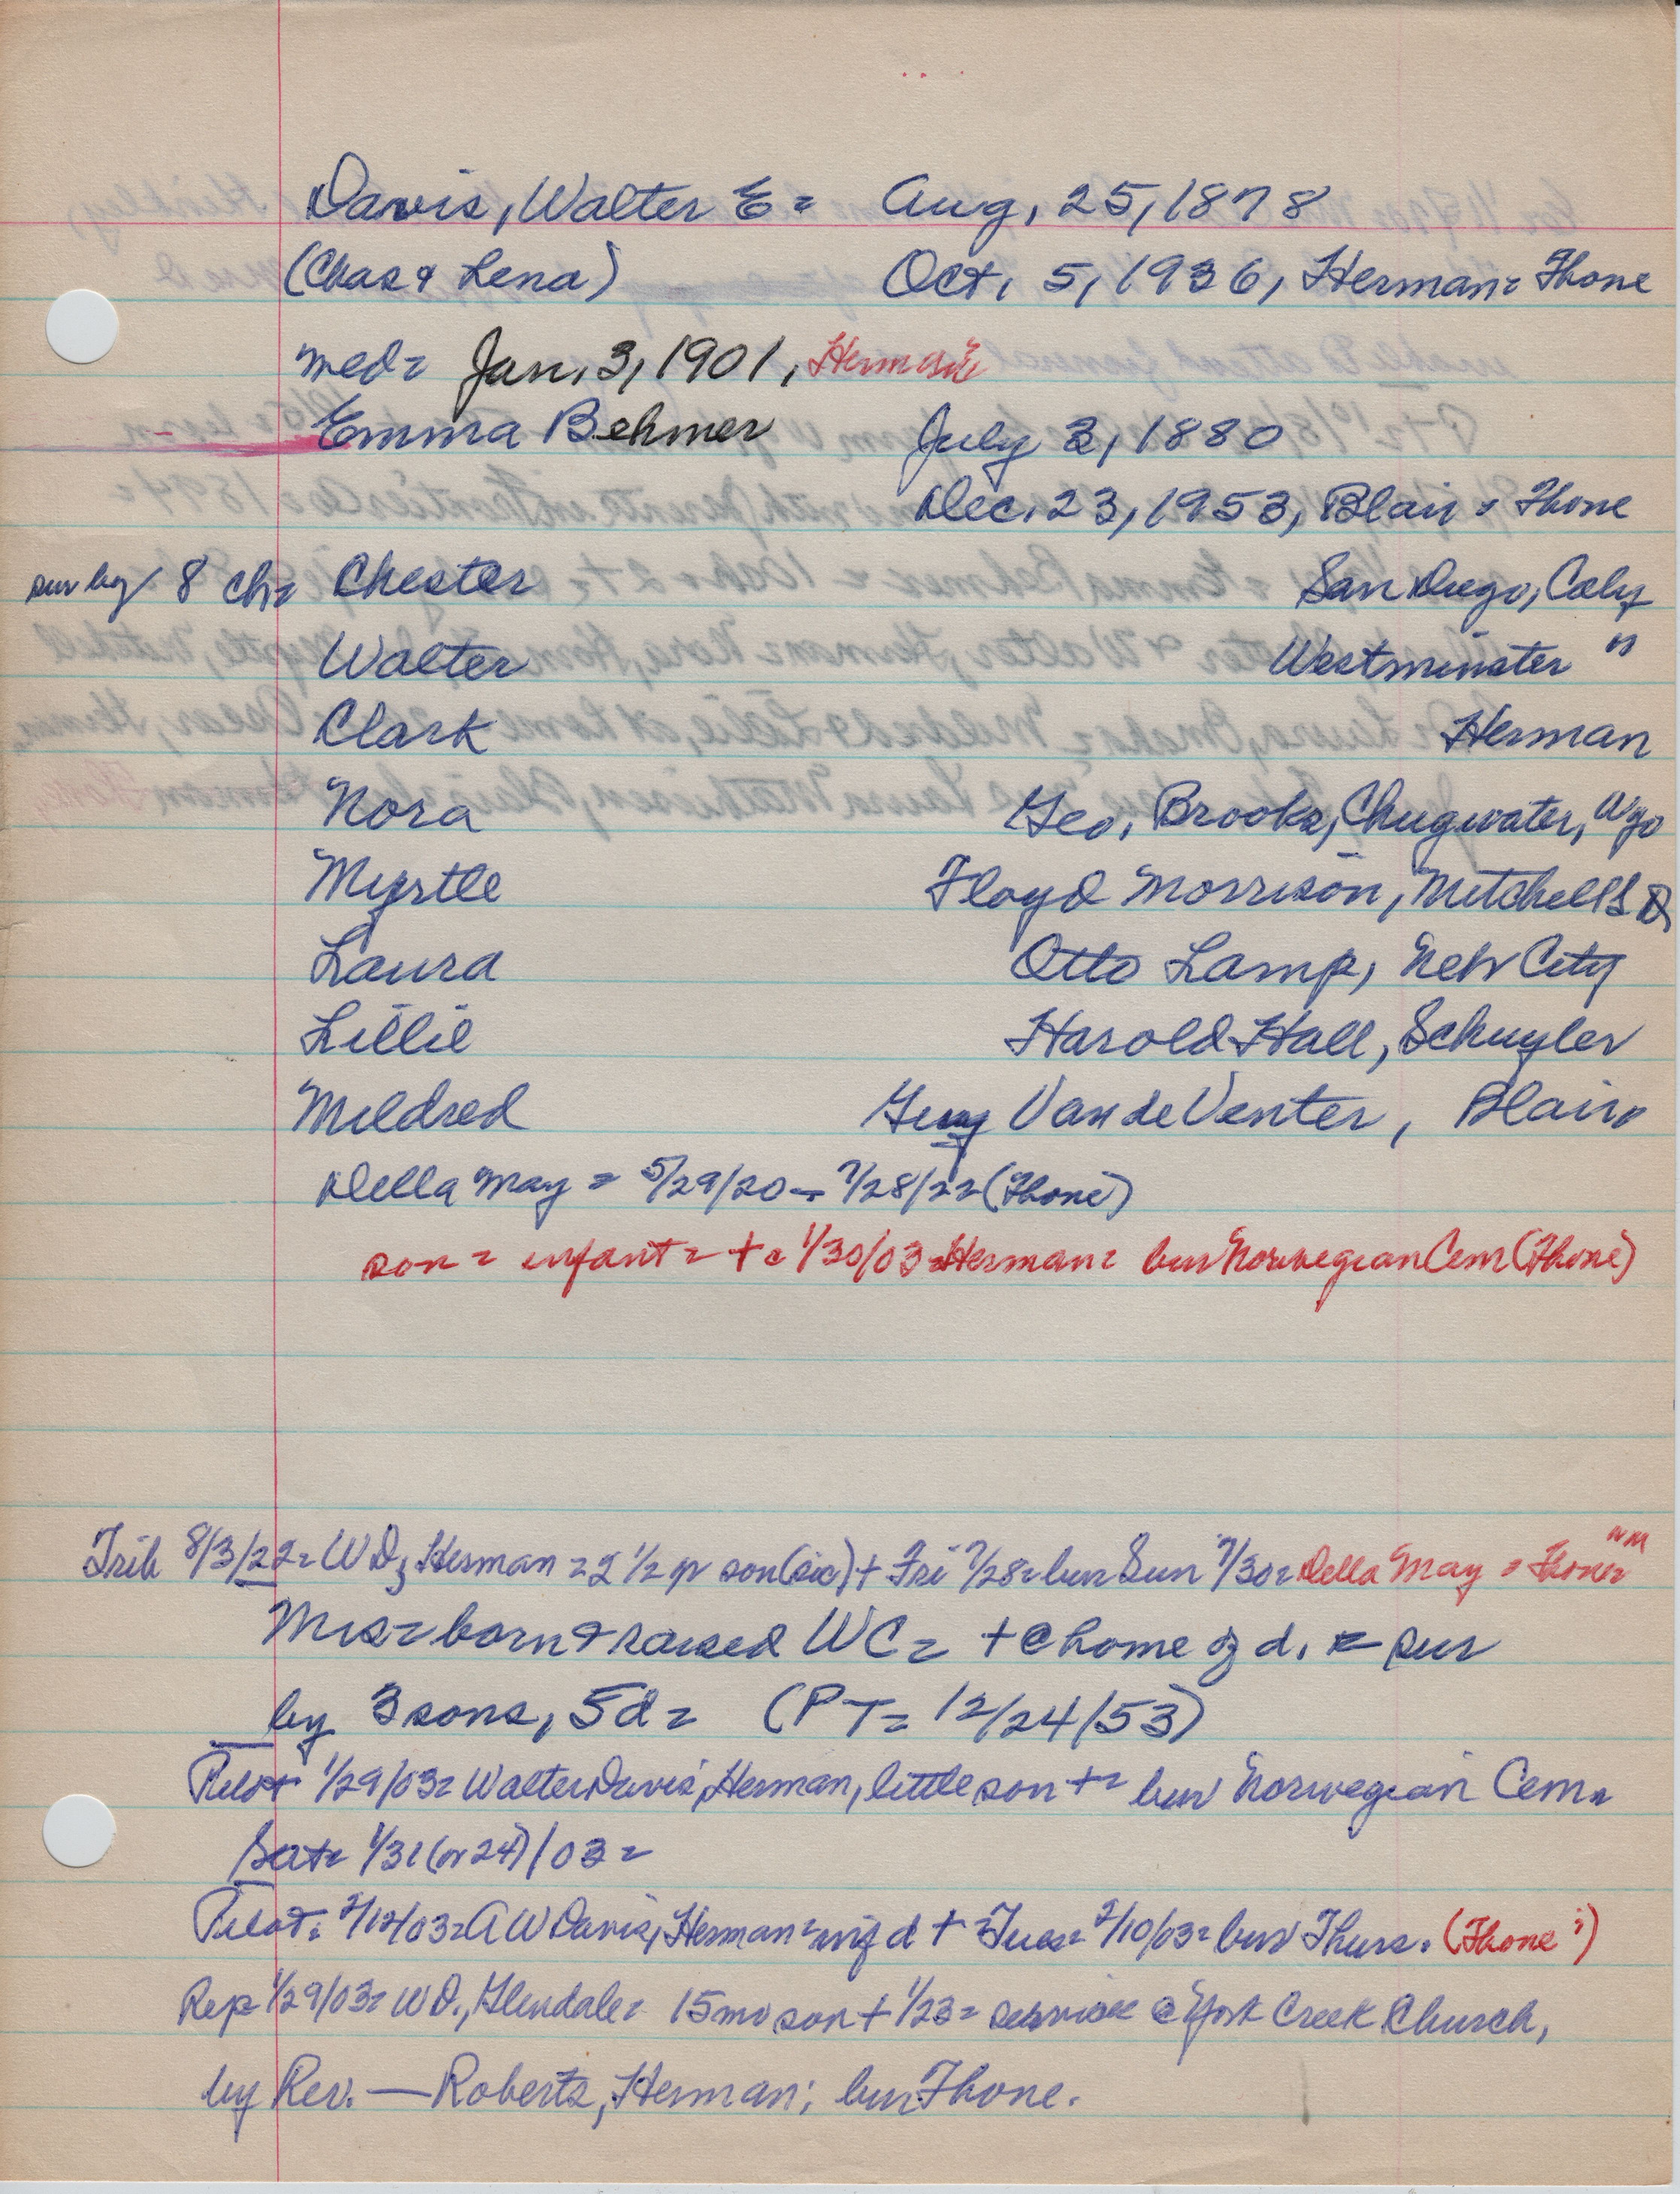 Davis, Walter E = Aug. 25, 1878
(Chas & Lena) Oct. 5, 1936, Herman = Fhone
med = Jan. 3, 1901, Herman
Emma Behmer July 2, 1880
Dec. 23, 1953, Blair = Fhone
sur by 8 ch = Chester San Diego, Calif
Walter Westminster "
Clark Herman
Nora Geo. Brooks, Chugwater, Wyo
Myrtle Floyd Morrison, Mitchell S D
Laura Otto Lamp, Nebr City
Lillie Harold Hall, Schuyler
Mildred Guy Van de Venter, Blair
Della May = 5/29/20 - 7/28/22 (Fhone)
son = infant = + c 1/30/03 = Herman = bur Norwegian Cem (Fhone)
Trib 8/3/22 = W D, Herman = 2 1/2 yr son (sic) + Fri 7/28 = bur Sun 7/30 = Della May = Fhone = NM
Mrs = born & raised WC = + @ home of d. = sur
by 3 sons, 5 d = (PT = 12/24/53)
Pilot 1/29/03 = Walter Davis, Herman, little son + = bur Norwegian Cem =
Sat = 1/31 (or 24) / 03 =
Pilot = 2/12/03 = A W Davis, Herman = inf d + = Tues = 2/10/03 = bur Thurs. (Fhone ?)
Rep 1/29/03 = W D., Glendale = 15 mo son + 1/23 = service @ York Creek Church,
by Rev. — Roberts, Herman; bur Fhone.